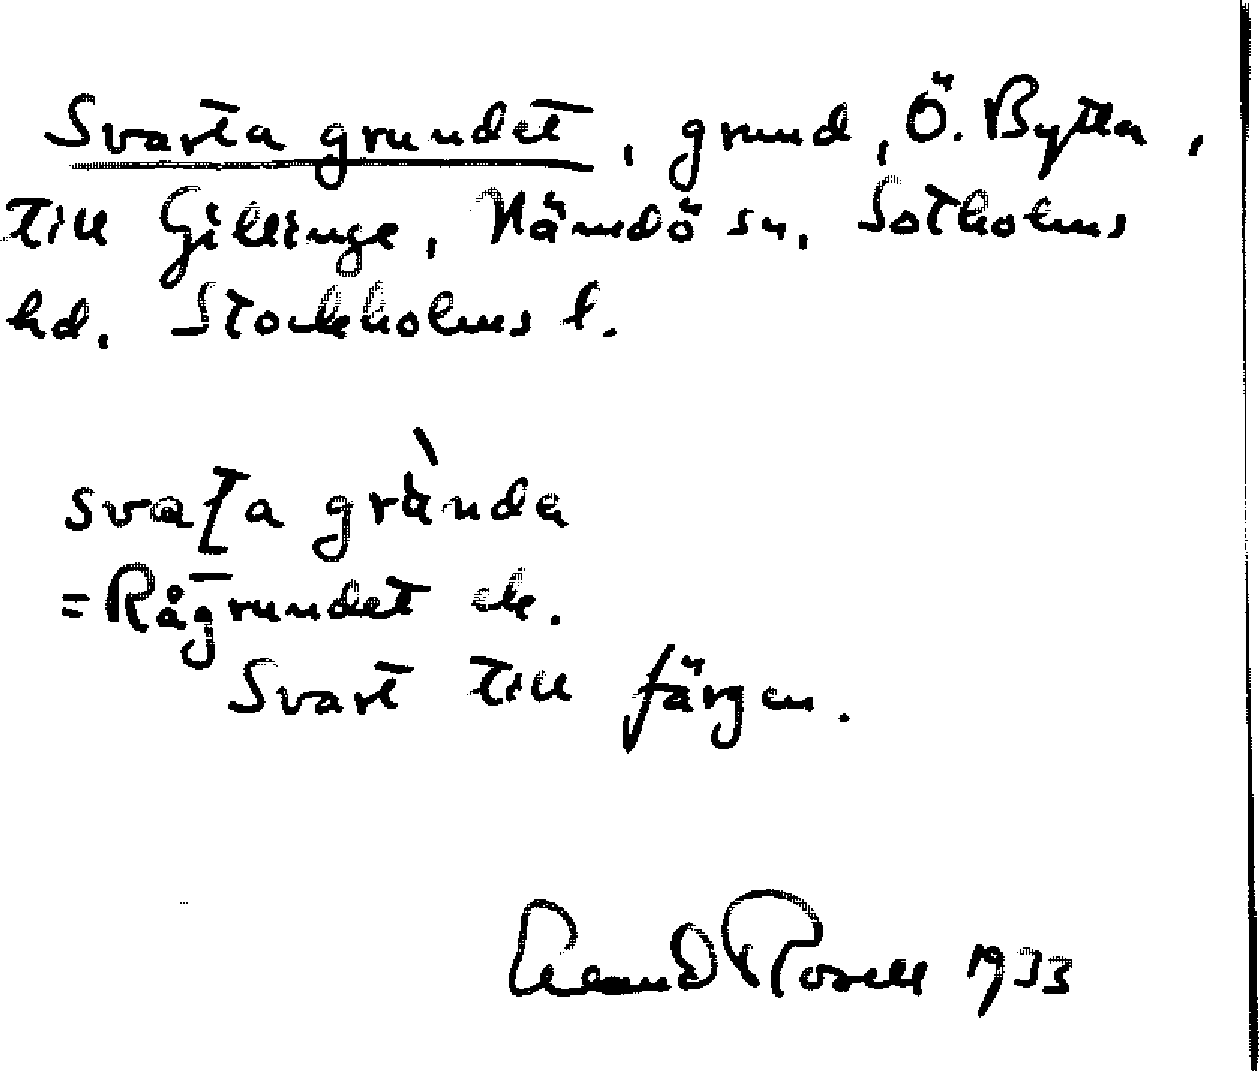 Svarta grundet, grund, Ö. Bytta,
till Gillinge, Nämdö sn, Sotholms
hd. Stockholms l.
svaʈa grùnda
=Rågrundet
Svart till färgen.
Rosell 1933